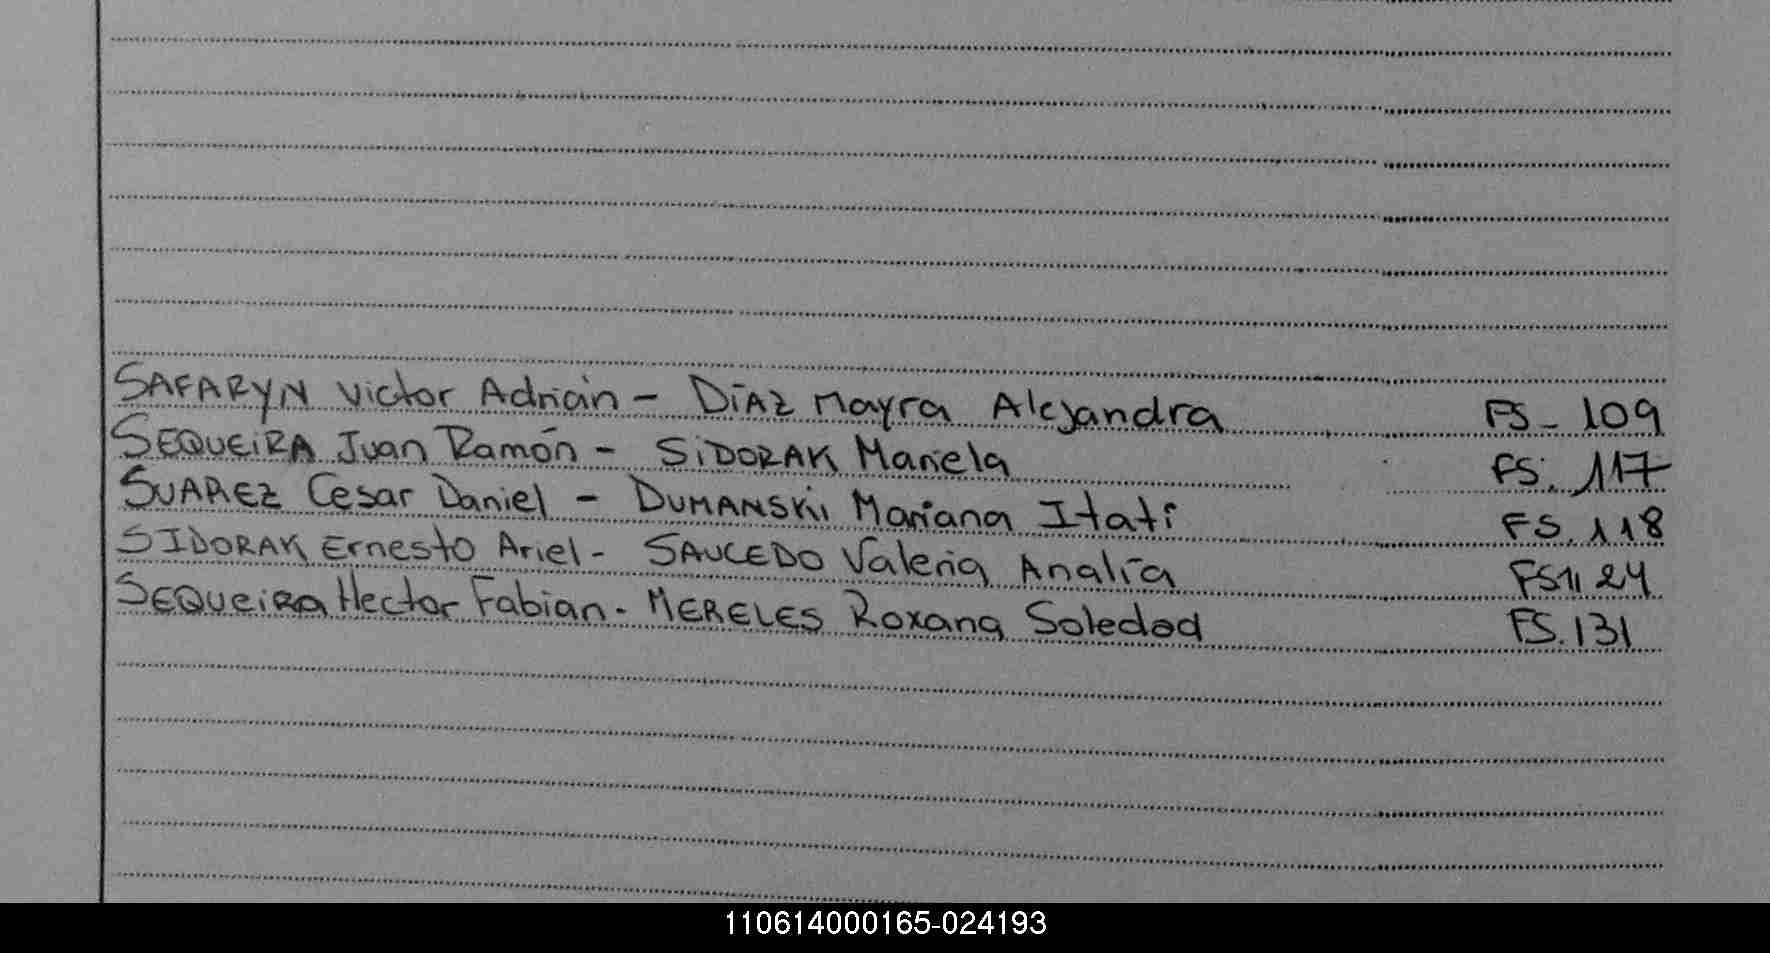 SAFARYN Victor Adrián - DíAZ Mayra Alejandra FS - 109
SEQUEiRA Juan Ramón - SiDORAK Mariela FS. 117
SUAREZ Cesar Daniel - DUMANSKi Mariana Itatí FS. 118
SIDORAK Ernesto Ariel - SAUCEDO Valeria Analía FS 124
SEQUeiRa Hector Fabian - MERELES Roxana Soledad FS. 131
110614000165-024193